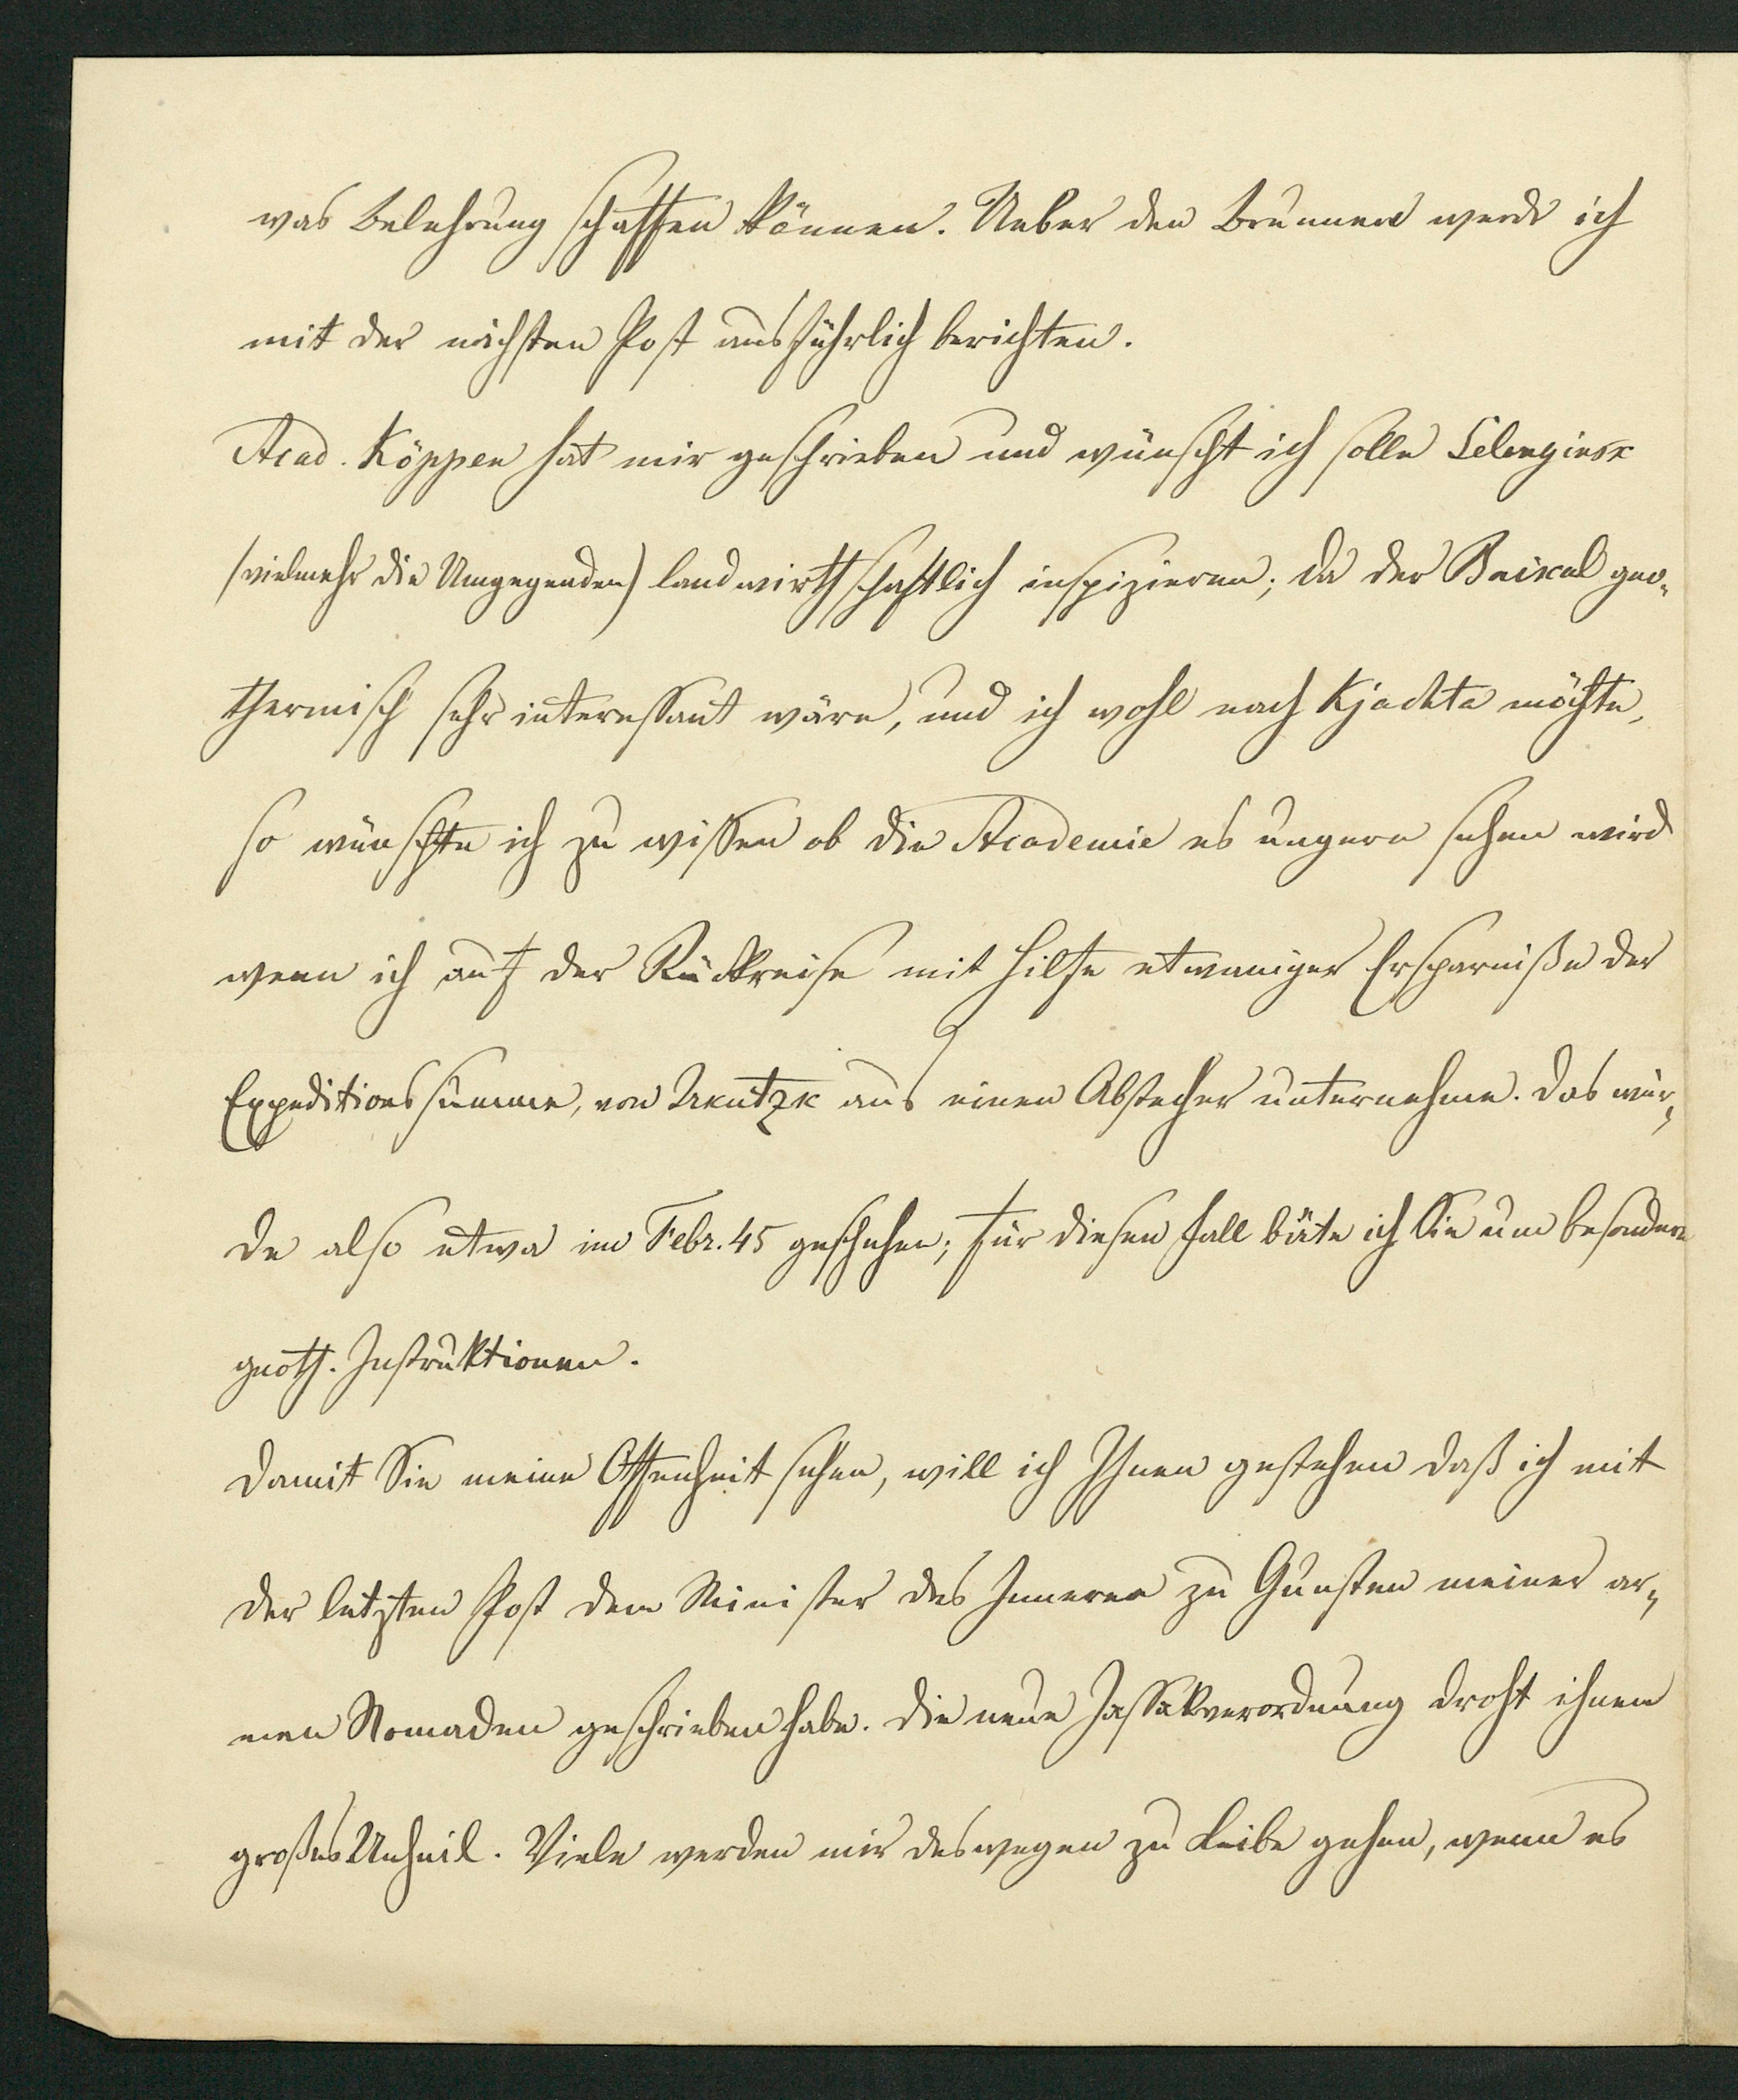 was Belehrung schaffen können. Ueber den Brunnen werde ich
mit der nächsten Post ausführlich berichten.
Acad. Köppen hat mir geschrieben und wünscht ich solle Selenginsk
(vielmehr die Umgegenden) landwirthschaftlich inspiziren; da der Baikal geo-
thermisch sehr interessant wäre, und ich wohl nach Kjachta möchte,
so wünschte ich zu wissen ob die Academie es ungern sehen wird
wenn ich auf der Rückreise mit Hilfe etwaniger Ersparniße der
Expeditionssumme, von Irkutzk aus einen Abstecher unternehme. Das wür-
de also etwa im Febr. 45 geschehen; für diesen Fall bäte ich Sie um besondere
geoth. Instruktionen.
Damit Sie meine Offenheit sehen, will ich Ihnen gestehen daß ich mit
der letzten Post dem Minister des Inneren zu Gunsten meiner ar-
men Nomaden geschrieben habe. Die neue Jassakverordnung droht ihnen
großes Unheil. Viele werden mir deswegen zu Leibe gehen, wenn es